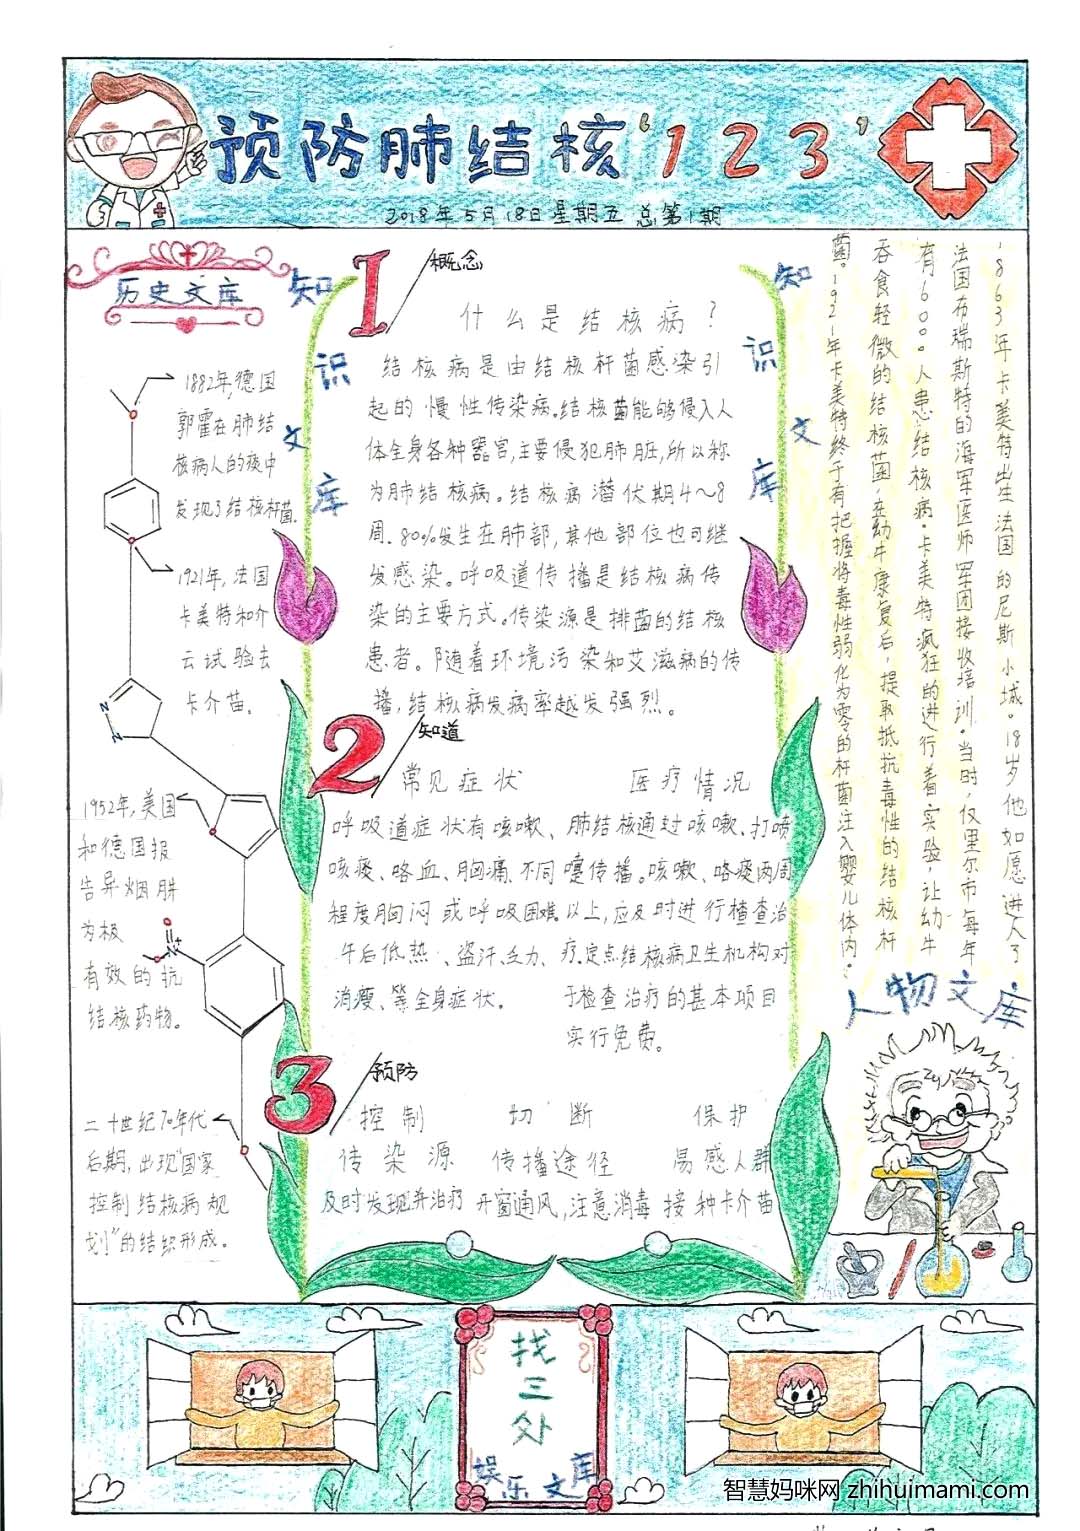 预防肺结核“123”
2018年5月18日星期五 总第1期
历史文库
1882年,德国
郭霍在肺结
核病人的痰中
发现了结核杆菌.
1921年,法国
卡美特和介
云试验去
卡介苗.
1952年,美国
和德国报
告异烟肼
为极
有效的抗
结核药物。
二十世纪70年代
后期,出现“国家
控制结核病规
划”的结织形成。
知识文库
1
概念
什么是结核病?
结核病是由结核杆菌感染引
起的慢性传染病.结核菌能够侵入人
体全身各种器官,主要侵犯肺脏,所以称
为肺结核病。结核病潜伏期4~8
周.80%发生在肺部,其他部位也可继
发感染。呼吸道传播是结核病传
染的主要方式。传染源是排菌的结核
患者。随着环境污染和艾滋病的传
播,结核病发病率越发强烈。
2
知道
常见症状
呼吸道症状有咳嗽、
咳痰、咯血、胸痛、不同
程度胸闷或呼吸困难.
午后低热、盗汗、乏力、
消瘦、等全身症状。
医疗情况
肺结核通过咳嗽、打喷
嚏传播。咳嗽、咯痰两周
以上,应及时进行检查治
疗.定点结核病卫生机构对
于检查治疗的基本项目
实行免费。
3
预防
控制
传染源
及时发现并治疗
切断
传播途径
开窗通风,注意消毒
保护
易感人群
接种卡介苗
知识文库
1863年卡美特出生法国的尼斯小城。18岁他如愿进入了
法国布瑞斯特的海军医师军团接收培训。当时,仅里尔市每年
有6000人患结核病。卡美特疯狂的进行着实验,让幼牛
吞食轻微的结核菌,在幼牛康复后,提取抵抗毒性的结核杆
菌。1921年卡美特终于有把握将毒性弱化为零的杆菌注入婴儿体内。
人物文库
找三处
娱乐文库
智慧妈咪网 zhihuimami.com